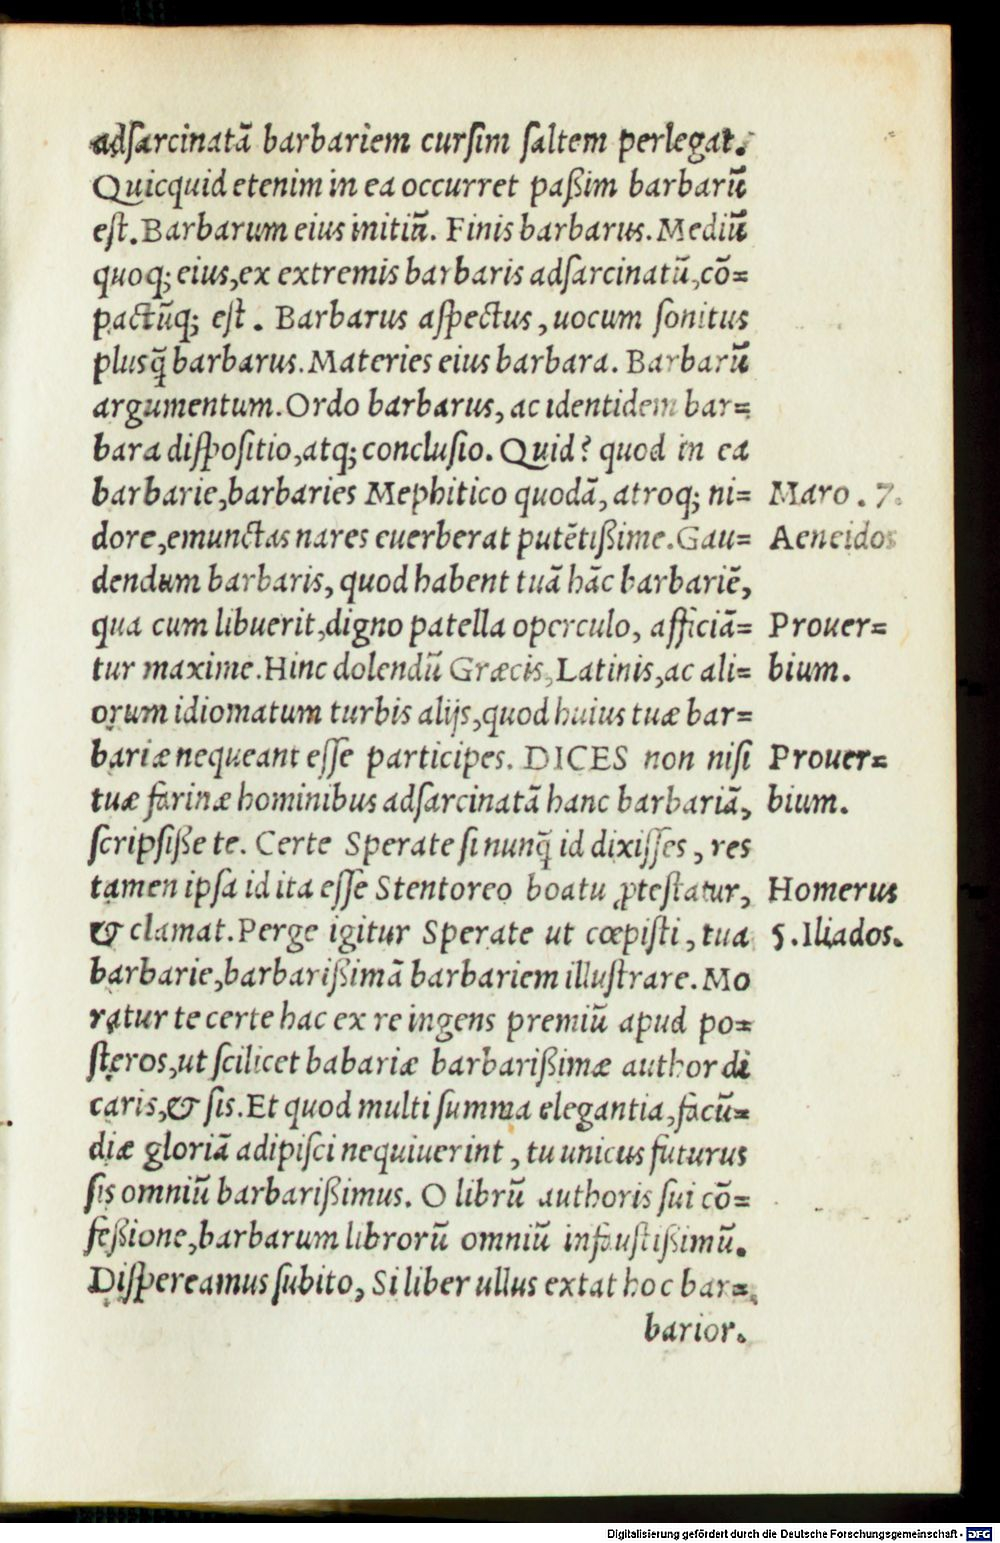 adſarcinatā barbariem curſim ſaltem perlegat.
Quicquid etenim in ea occurret paßim barbarū
eſt. Barbarum eius initiū. Finis barbarus. Mediū
quoq; eius, ex extremis barbaris adſarcinatū, cō=
pactūq; eſt. Barbarus aſpectus, uocum ſonitus
plusq̄ barbarus. Materies eius barbara. Barbarū
argumentum. Ordo barbarus, ac identidem bar=
bara diſpoſitio, atq; concluſio. Quid? quod in ea
barbarie, barbaries Mephitico quodā, atroq; ni=
dore, emunctas nares euerberat putētißime. Gau=
dendum barbaris, quod habent tuā hāc barbariē,
qua cum libuerit, digno patella operculo, afficiā=
tur maxime. Hinc dolendū Græcis, Latinis, ac ali=
orum idiomatum turbis alijs, quod huius tuæ bar=
bariæ nequeant eſſe participes. DICES non niſi
tuæ farinæ hominibus adſarcinatā hanc barbariā,
ſcripſiße te. Certe Sperate ſi nunq̄ id dixiſſes, res
tamen ipſa id ita eſſe Stentoreo boatu ꝓteſtatur,
& clamat. Perge igitur Sperate ut cœpiſti, tua
barbarie, barbarißimā barbariem illuſtrare. Mo
ratur te certe hac ex re ingens premiū apud po=
ſteros, ut ſcilicet babariæ barbarißimæ author di
caris, & ſis. Et quod multi ſumma elegantia, facū=
diæ gloriā adipiſci nequiuerint, tu unicus futurus
ſis omniū barbarißimus. O librū authoris ſui cō=
feßione, barbarum librorū omniū infauſtißimū.
Diſpereamus ſubito, Si liber ullus extat hoc bar=
barior.
Maro. 7.
Aeneidos
Prouer=
bium.
Prouer=
bium.
Homerus
5. Iliados.
Digitalisierung gefördert durch die Deutsche Forschungsgemeinschaft - DFG